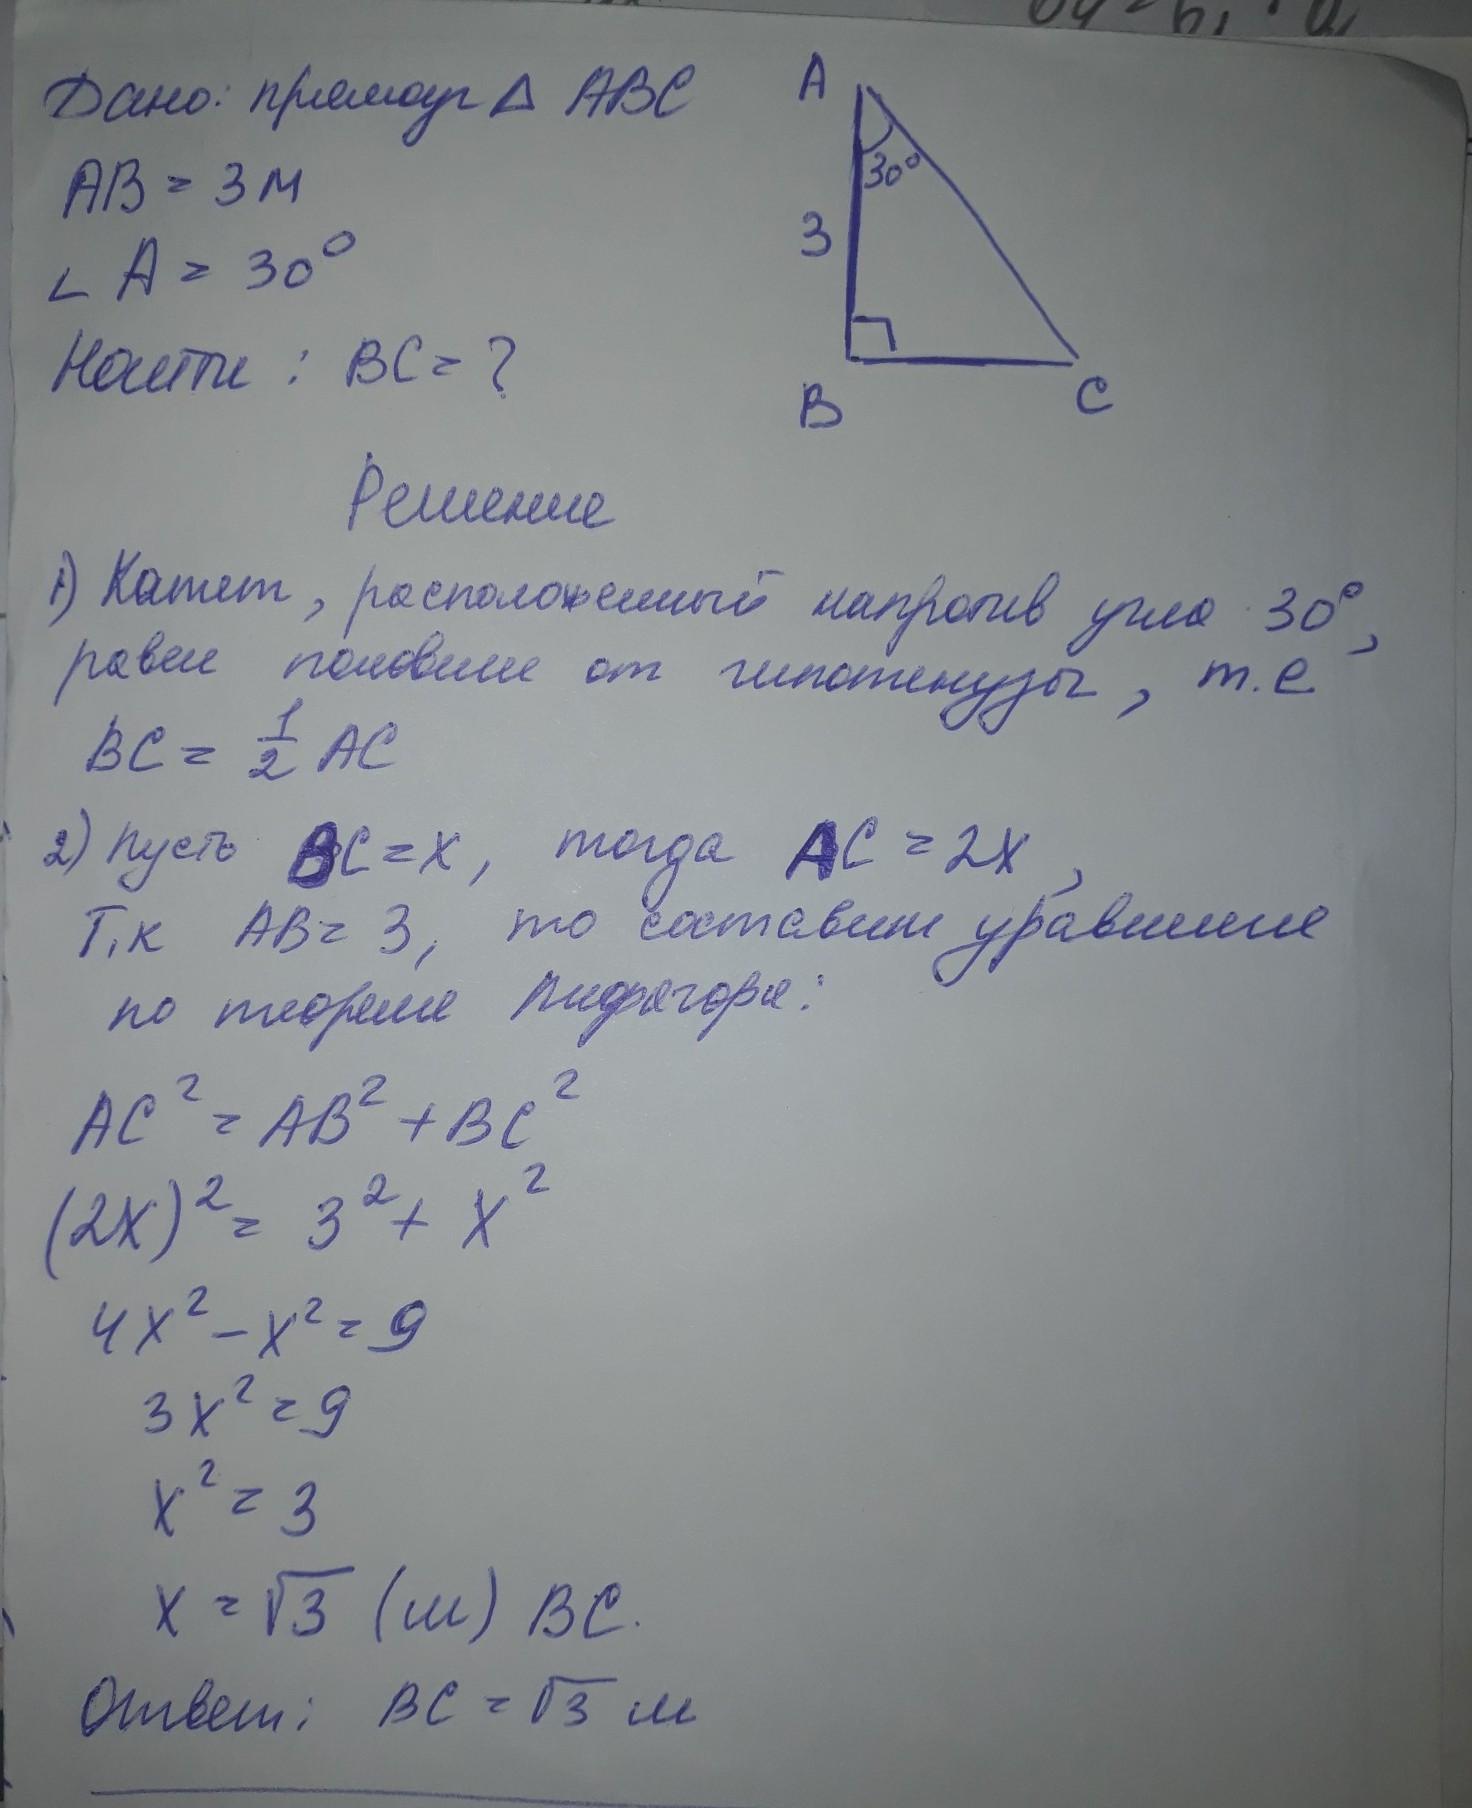 Дано: прямоуг △ ABC
AB = 3м
∠ A = 30°
Найти : BC = ?
A
30°
3
B
C
Решение
1) Катет, расположенный напротив угла 30°,
равен половине от гипотенузы, т.е
BC = 1/2 AC
2) Пусть BC = x, тогда AC = 2x,
Т.к AB = 3, то составим уравнение
по теореме Пифагора:
AC² = AB² + BC²
(2x)² = 3² + x²
4x² - x² = 9
3x² = 9
x² = 3
x = √3 (м) BC.
Ответ: BC = √3 м